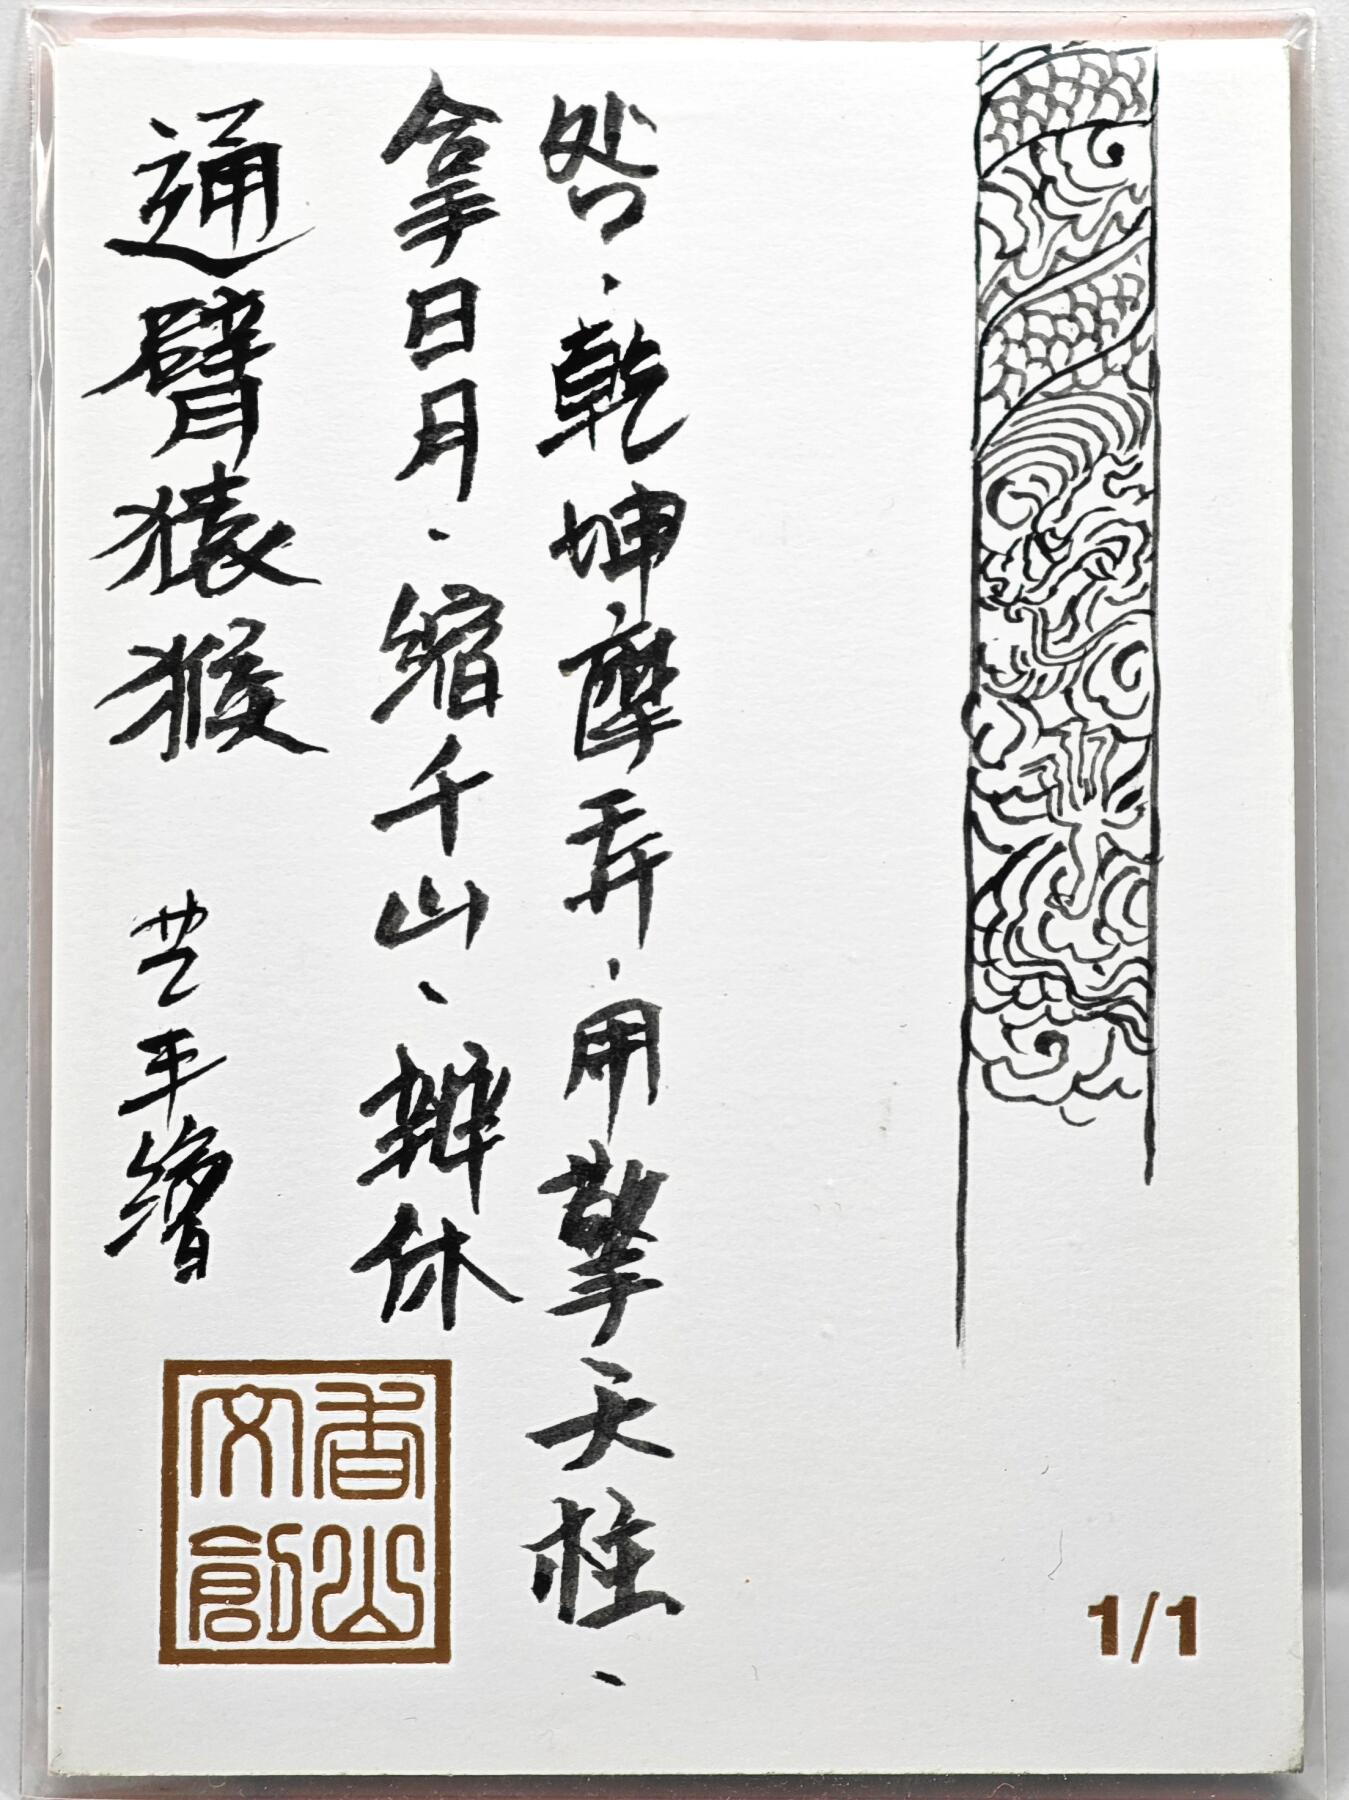 通臂猿猴
拿日月、缩千山、辨休
咎、乾坤摩弄、用擎天柱、
平繪
香山文創
1/1